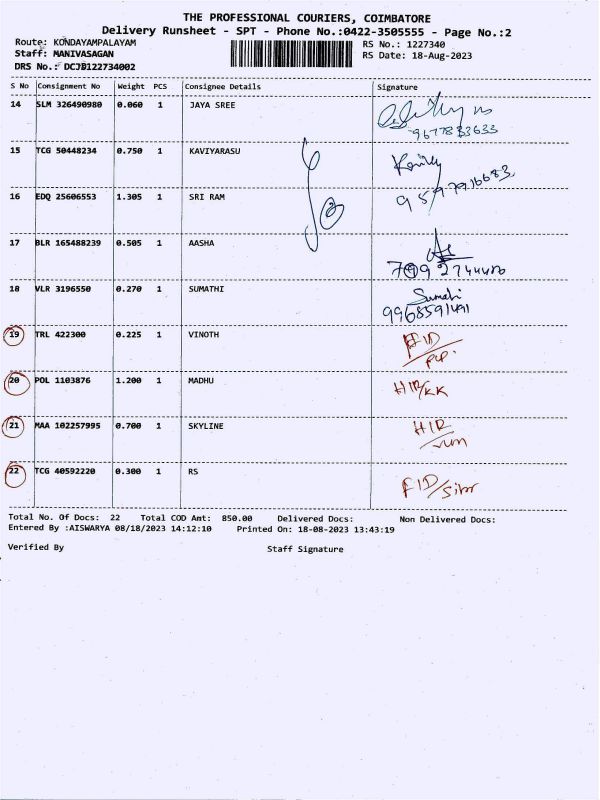 THE PROFESSIONAL COURIERS, COIMBATORE
Delivery Runsheet - SPT - Phone No.:0422-3505555 - Page No.:2
Route: KONDAYAMPALAYAM RS No.: 1227340
Staff: MANIVASAGAN RS Date: 18-Aug-2023
DRS No.: DCJB122734002
S No Consignment No Weight PCS Consignee Details Signature
14 SLM 326490980 0.060 1 JAYA SREE
9677833633
15 TCG 50448234 0.750 1 KAVIYARASU
16 EDQ 25606553 1.305 1 SRI RAM
9597916683
17 BLR 165488239 0.505 1 AASHA
18 VLR 3196550 0.270 1 SUMATHI Sumathi
19 TRL 422300 0.225 1 VINOTH
20 POL 1103876 1.200 1 MADHU HIR/KK
21 MAA 102257995 0.700 1 SKYLINE HIR/
22 TCG 40592220 0.300 1 RS FID/
Total No. Of Docs: 22 Total COD Amt: 850.00 Delivered Docs: Non Delivered Docs:
Entered By :AISWARYA 08/18/2023 14:12:10 Printed On: 18-08-2023 13:43:19
Verified By Staff Signature